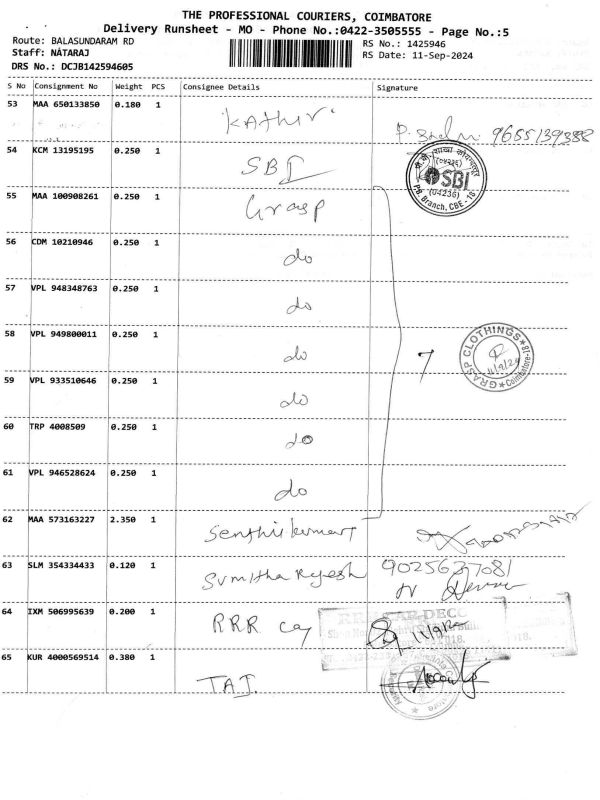 THE PROFESSIONAL COURIERS, COIMBATORE
Delivery Runsheet - MO - Phone No.:0422-3505555 - Page No.:5
Route: BALASUNDARAM RD
RS No.: 1425946
Staff: NATARAJ
RS Date: 11-Sep-2024
DRS No.: DCJB142594605
S No Consignment No Weight PCS Consignee Details Signature
53 MAA 650133850 0.180 1 Kathir 9655139388
54 KCM 13195195 0.250 1 SBI
SBI
(04236)
PB Branch, CBE - 18
55 MAA 100908261 0.250 1 Grasp
56 CDM 10210946 0.250 1 do
57 VPL 948348763 0.250 1 do
58 VPL 949800011 0.250 1 do 7
GRASP CLOTHINGS
11/9/24
Coimbatore-18
59 VPL 933510646 0.250 1 do
60 TRP 4008509 0.250 1 do
61 VPL 946528624 0.250 1 do
62 MAA 573163227 2.350 1 Senthilkumar
63 SLM 354334433 0.120 1 Sumitha Rajesh 9025637081
64 IXM 506995639 0.200 1 RRR Car
CAR DECO
65 KUR 4000569514 0.380 1 TAJ